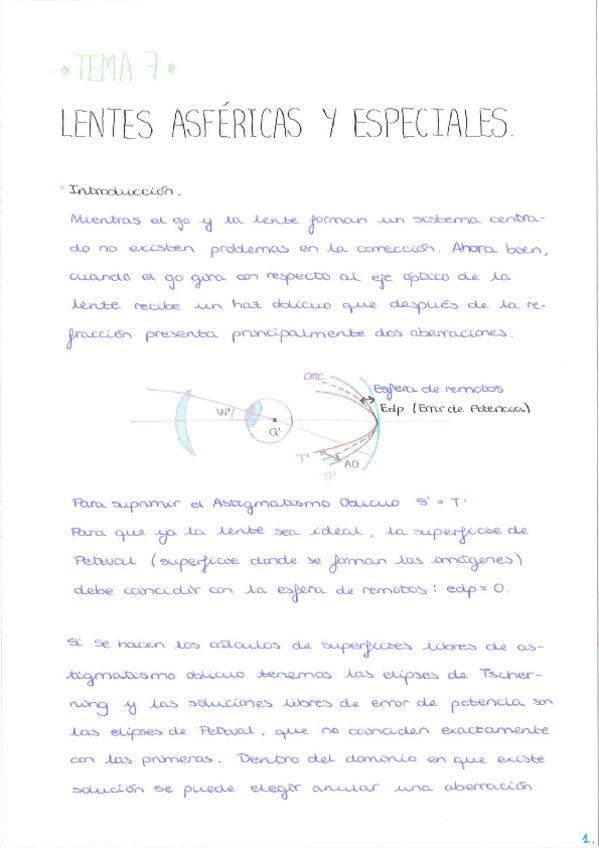 * TEMA 7 *
LENTES ASFÉRICAS Y ESPECIALES.
* Introducción.
Mientras el ojo y la lente forman un sistema centra-
do no existen problemas en la corrección. Ahora bien,
cuando el ojo gira con respecto al eje óptico de la
lente recibe un haz oblicuo que después de la re-
fracción presenta principalmente dos aberraciones.
CMC
Esfera de remotos
Edp (Error de Potencia)
W'
Q'
T'
AO
S'
Para suprimir el Astigmatismo Oblicuo S' = T'
Para que ya la lente sea ideal, la superficie de
Petzval (superficie donde se forman las imágenes)
debe coincidir con la esfera de remotos: edp = 0.
Si se hacen los cálculos de superficies libres de as-
tigmatismo oblicuo tenemos las elipses de Tscher-
ning y las soluciones libres de error de potencia son
las elipses de Petzval, que no coinciden exactamente
con las primeras. Dentro del dominio en que existe
solución se puede elegir anular una aberración
1.